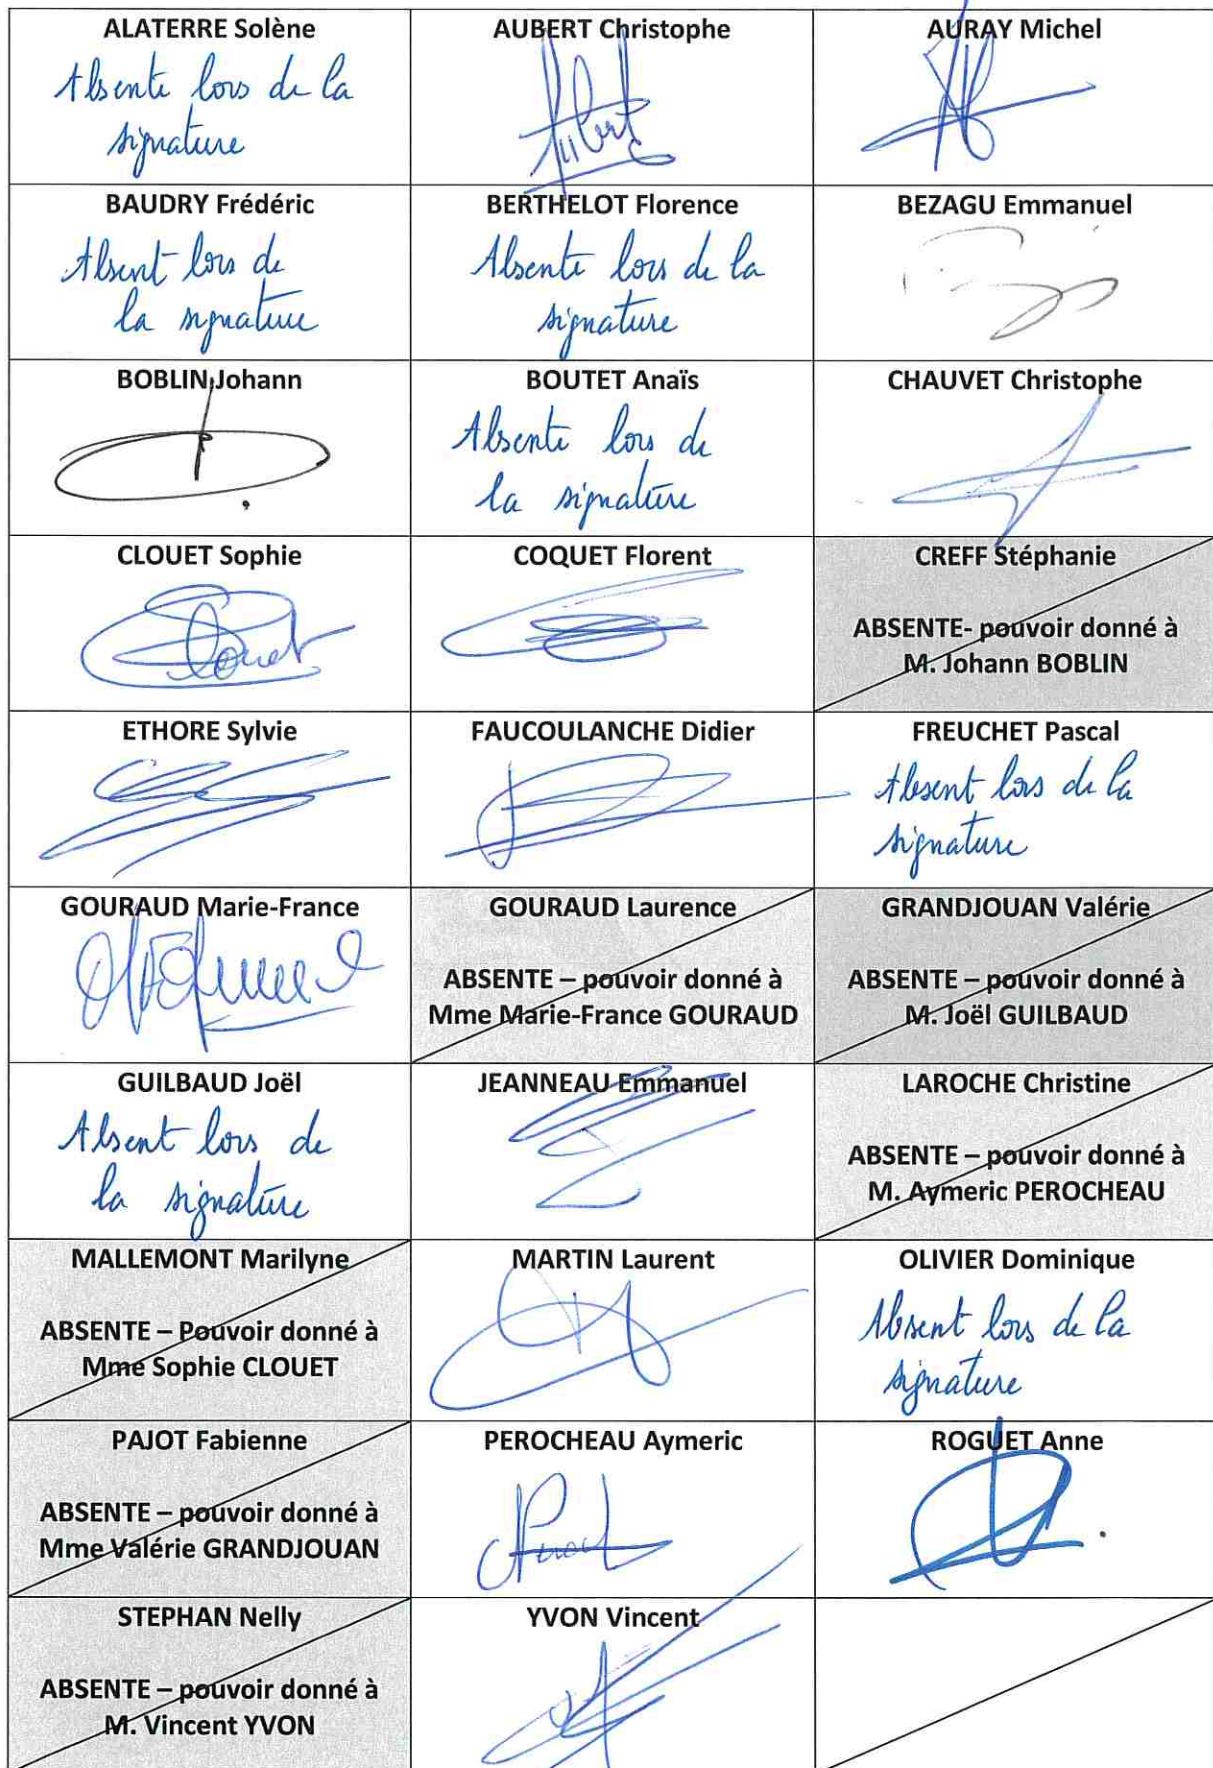 ALATERRE Solène
Absente lors de la
signature
AUBERT Christophe
Aubert
AURAY Michel
BAUDRY Frédéric
Absent lors de
la signature
BERTHELOT Florence
Absente lors de la
signature
BEZAGU Emmanuel
BOBLIN Johann
BOUTET Anaïs
Absente lors de
la signature
CHAUVET Christophe
CLOUET Sophie
Clouet
COQUET Florent
CREFF Stéphanie
ABSENTE- pouvoir donné à
M. Johann BOBLIN
ETHORE Sylvie
FAUCOULANCHE Didier
FREUCHET Pascal
Absent lors de la
signature
GOURAUD Marie-France
GOURAUD Laurence
ABSENTE – pouvoir donné à
Mme Marie-France GOURAUD
GRANDJOUAN Valérie
ABSENTE – pouvoir donné à
M. Joël GUILBAUD
GUILBAUD Joël
Absent lors de
la signature
JEANNEAU Emmanuel
LAROCHE Christine
ABSENTE – pouvoir donné à
M. Aymeric PEROCHEAU
MALLEMONT Marilyne
ABSENTE – Pouvoir donné à
Mme Sophie CLOUET
MARTIN Laurent
OLIVIER Dominique
Absent lors de la
signature
PAJOT Fabienne
ABSENTE – pouvoir donné à
Mme Valérie GRANDJOUAN
PEROCHEAU Aymeric
ROGUET Anne
STEPHAN Nelly
ABSENTE – pouvoir donné à
M. Vincent YVON
YVON Vincent